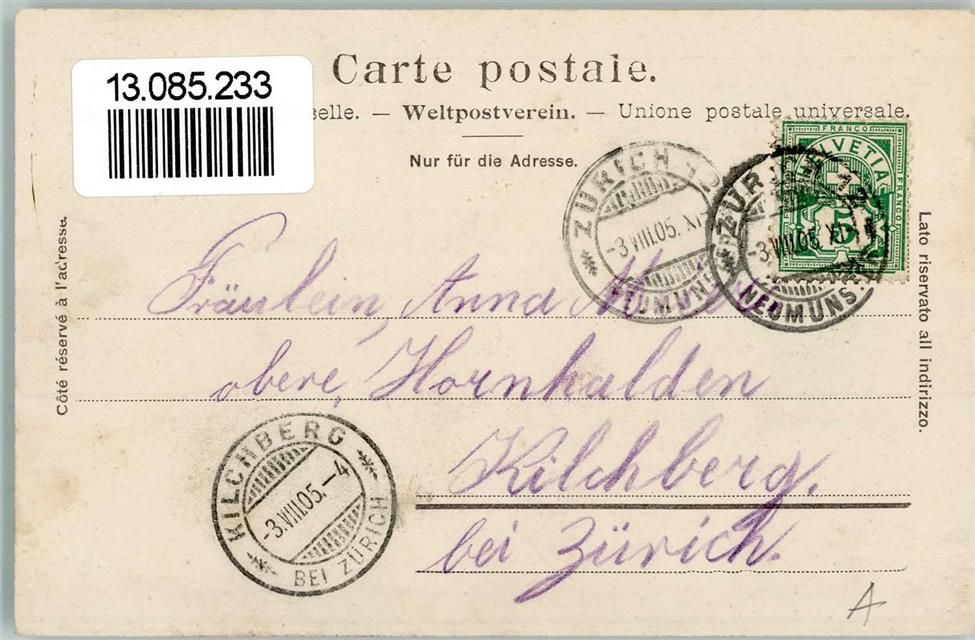 13.085.233
Carte postale.
selle. — Weltpostverein. — Unione postale universale.
Nur für die Adresse.
FRANCO
HELVETIA
FRANCO
5
ZÜRICH
-3.VIII.05. XI
NEUMÜNS
ZÜR
-3.VIII.05. XI
NEUMÜNS
Côté réservé à l'adresse.
Lato riservato all indirizzo.
Fräulein, Anna
obere, Hornhalden
Kilchberg,
bei Zürich.
KILCHBERG
-3.VIII.05.-4
BEI ZÜRICH
A